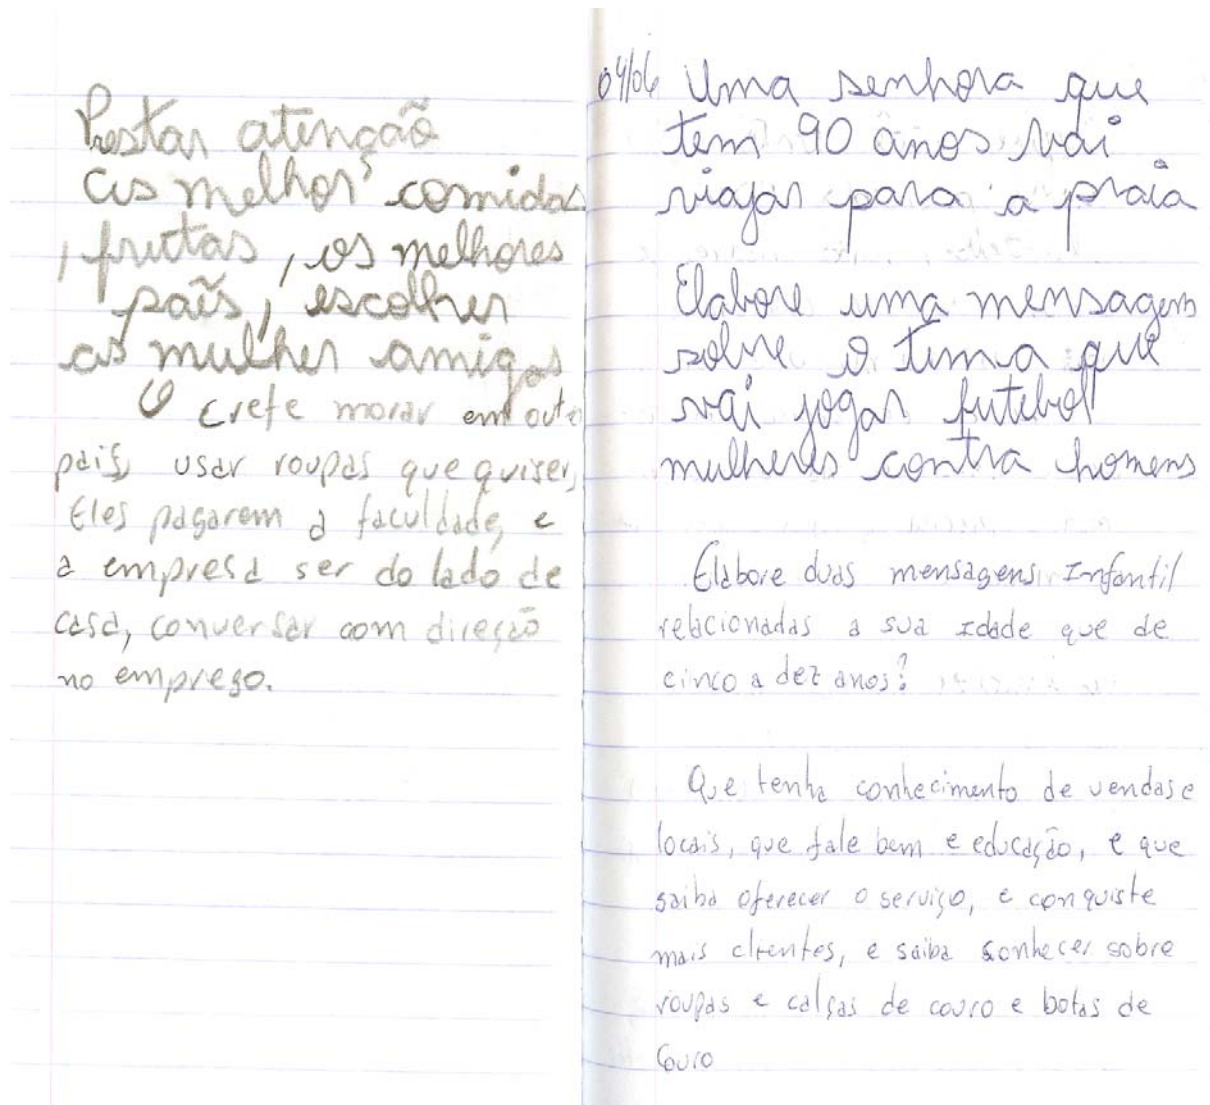 Prestar atenção
as melhor comidas
, frutas, os melhores
país, escolher
as mulher amigas
O crefe morar em outro
país, usar roupas que quiser,
Eles pagarem a faculdade, e
a empresa ser do lado de
casa, conversar com direção
no emprego.
04/06 Uma senhora que
tem 90 anos vai
viajar para a praia
Elabore uma mensagem
sobre o tema que
vai jogar futebol
mulheres contra homens
Elabore duas mensagens Infantil
relacionadas a sua Idade que de
cinco a dez anos?
Que tenha conhecimento de vendas e
locais, que fale bem e educação, e que
saiba oferecer o serviço, e conquiste
mais clientes, e saiba conhecer sobre
roupas e calças de couro e botas de
couro